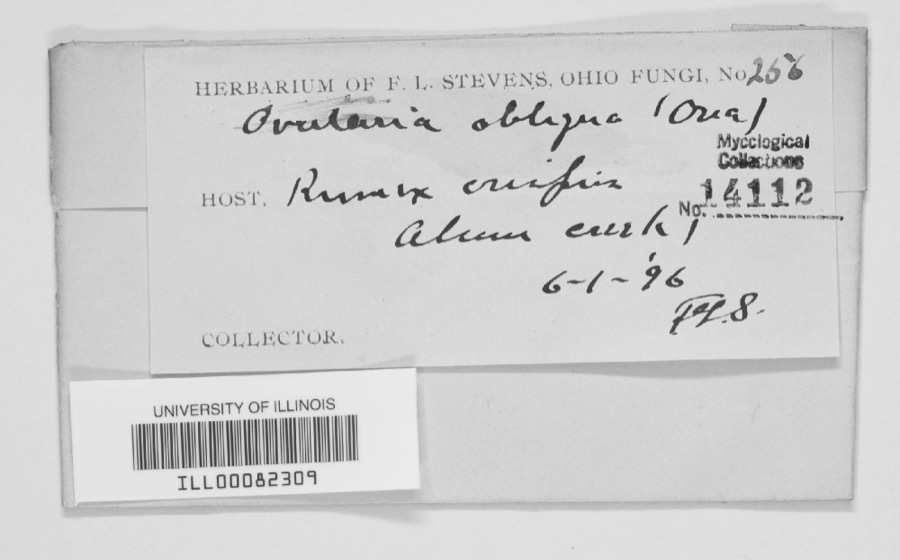 HERBARIUM OF F. L. STEVENS, OHIO FUNGI, No 256
Ovularia obliqua (Ova)
Mycological
Collections
No. 14112
HOST, Rumex crispus
Alum creek,
6-1-'96
F.L.S.
COLLECTOR,
UNIVERSITY OF ILLINOIS
ILL00082309